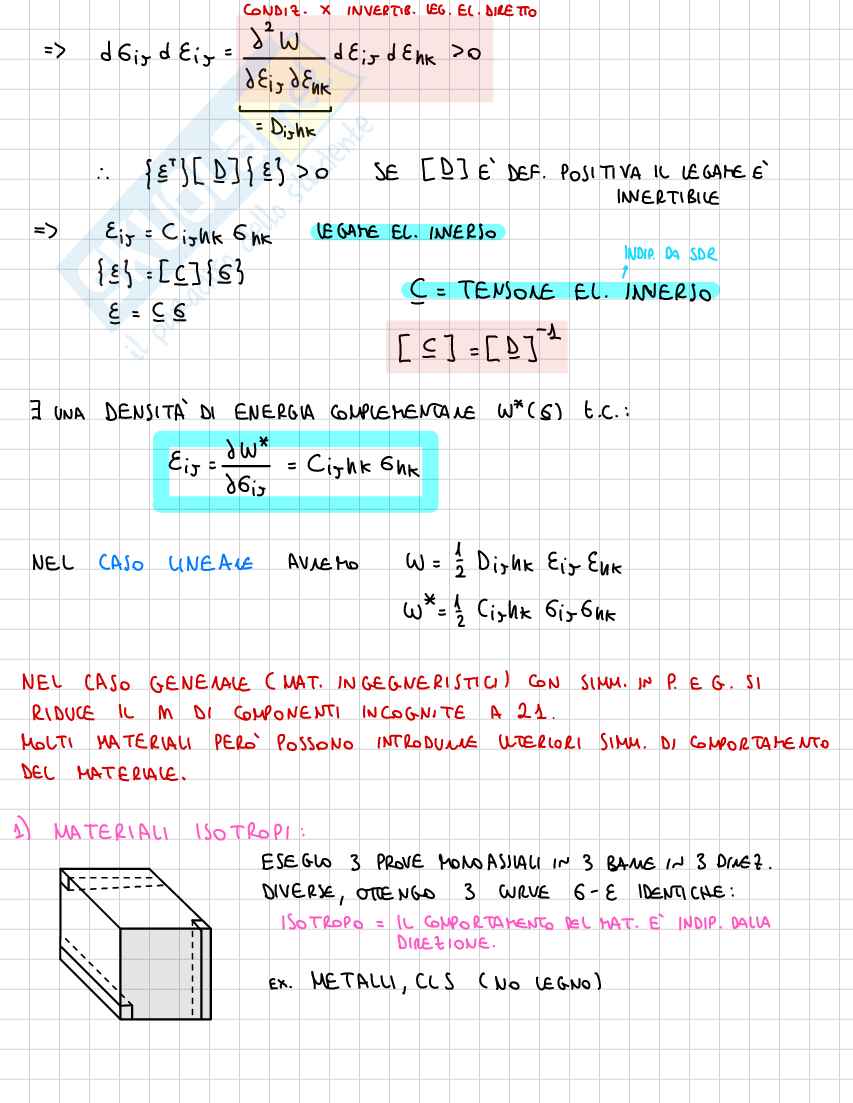 CONDIZ. X INVERTIB. LEG. EL. DIRETTO
=> dσij dεij = ∂²W / ∂εij ∂εhk dεij dεhk > 0
= Dijhk
∴ {ε^T}[D]{ε} > 0 SE [D] E' DEF. POSITIVA IL LEGAME E'
INVERTIBILE
=> εij = Cijhk σhk LEGAME EL. INVERSO
INDIP. DA SDR
{ε} = [C]{σ}
C = TENSORE EL. INVERSO
ε = C σ
[C] = [D]^-1
∃ UNA DENSITA' DI ENERGIA COMPLEMENTARE W*(σ) t.c.:
εij = ∂W* / ∂σij = Cijhk σhk
NEL CASO LINEARE AVREMO W = 1/2 Dijhk εij εhk
W* = 1/2 Cijhk σij σhk
NEL CASO GENERALE (MAT. INGEGNERISTICI) CON SIMM. IN P. E G. SI
RIDUCE IL M DI COMPONENTI INCOGNITE A 21.
MOLTI MATERIALI PERO' POSSONO INTRODURRE ULTERIORI SIMM. DI COMPORTAMENTO
DEL MATERIALE.
1) MATERIALI ISOTROPI:
ESEGUO 3 PROVE MONOASSIALI IN 3 BARRE IN 3 DIREZ.
DIVERSE, OTTENGO 3 CURVE σ-ε IDENTICHE:
ISOTROPO = IL COMPORTAMENTO DEL MAT. E' INDIP. DALLA
DIREZIONE.
EX. METALLI, CLS (NO LEGNO)